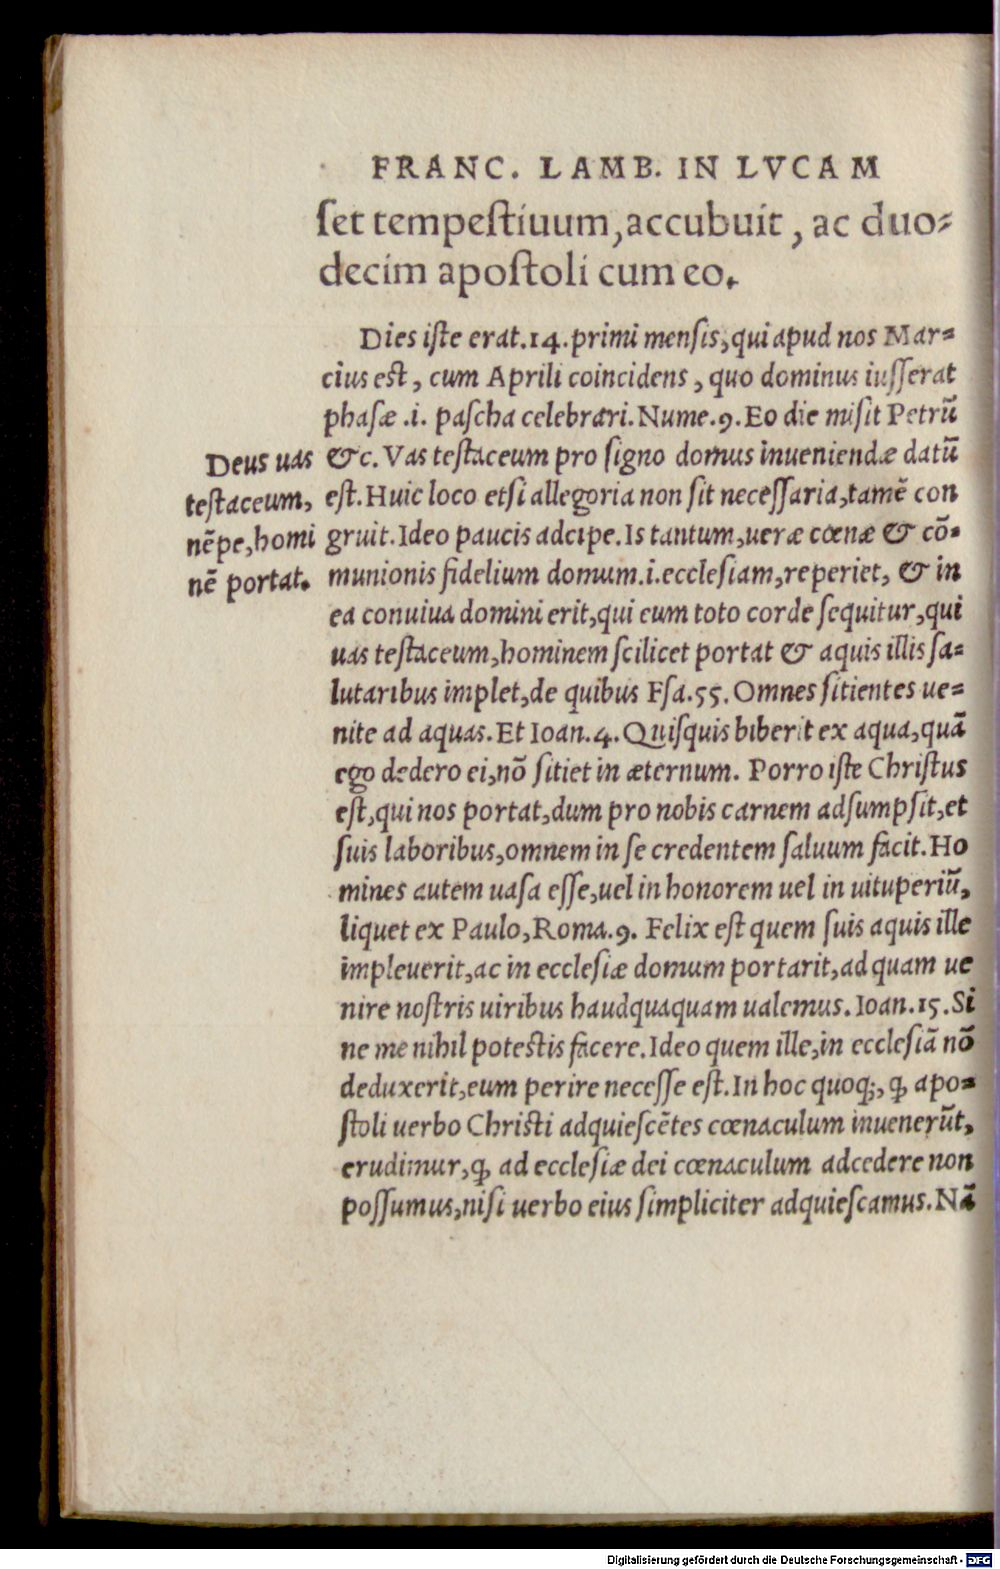 FRANC. LAMB. IN LVCAM
ſet tempeſtiuum, accubuit, ac duo⸗
decim apoſtoli cum eo.
Dies iſte erat.14.primi menſis,qui apud nos Mar⸗
cius eſt, cum Aprili coincidens, quo dominus iuſſerat
phaſæ .i. paſcha celebrari.Nume.9.Eo die miſit Petrū
&c. Vas teſtaceum pro ſigno domus inueniendæ datū
eſt.Huic loco etſi allegoria non ſit neceſſaria,tamē con
gruit.Ideo paucis adcipe.Is tantum,ueræ cœnæ & cō⸗
munionis fidelium domum.i.eccleſiam,reperiet, & in
ea conuiua domini erit,qui eum toto corde ſequitur,qui
uas teſtaceum,hominem ſcilicet portat & aquis illis ſa⸗
lutaribus implet,de quibus Eſa.55.Omnes ſitientes ue⸗
nite ad aquas.Et Ioan.4.Quiſquis biberit ex aqua,quā
ego dedero ei,nō ſitiet in æternum. Porro iſte Chriſtus
eſt,qui nos portat,dum pro nobis carnem adſumpſit,et
ſuis laboribus,omnem in ſe credentem ſaluum facit.Ho
mines autem uaſa eſſe,uel in honorem uel in uituperiū,
liquet ex Paulo,Roma.9. Felix eſt quem ſuis aquis ille
impleuerit,ac in eccleſiæ domum portarit,ad quam ue
nire noſtris uiribus haudquaquam ualemus.Ioan.15.Si
ne me nihil poteſtis facere.Ideo quem ille,in eccleſiā nō
deduxerit,eum perire neceſſe eſt.In hoc quoq;, ꝙ apo⸗
ſtoli uerbo Chriſti adquieſcētes cœnaculum inuenerūt,
erudimur,ꝙ ad eccleſiæ dei cœnaculum adcedere non
poſſumus,niſi uerbo eius ſimpliciter adquieſcamus.Nā
Deus uas
teſtaceum,
nēpe,homi
nē portat.
Digitalisierung gefördert durch die Deutsche Forschungsgemeinschaft - DFG